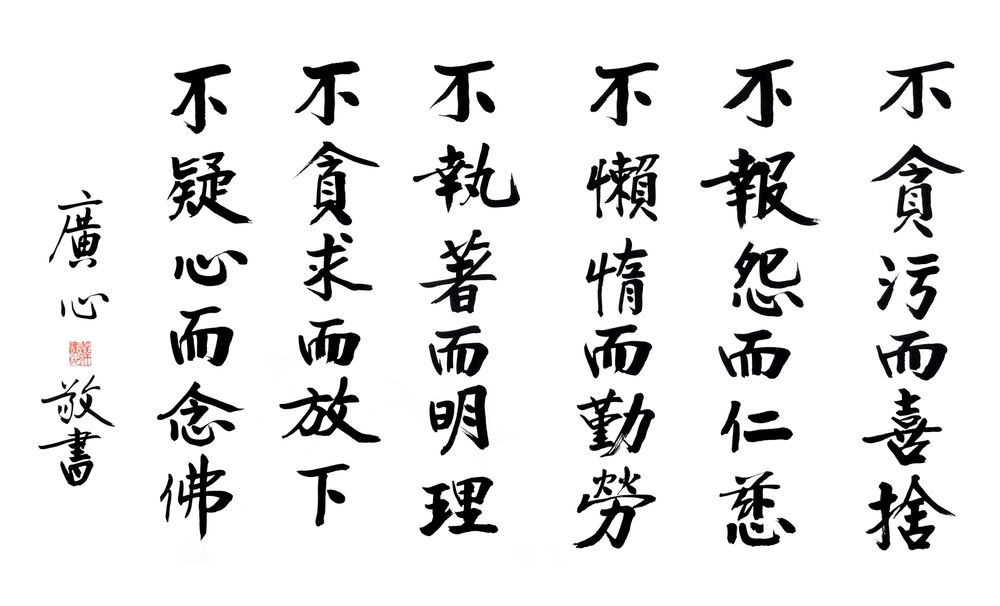 不貪污而喜捨
不報怨而仁慈
不懶惰而勤勞
不執著而明理
不貪求而放下
不疑心而念佛
廣心敬書